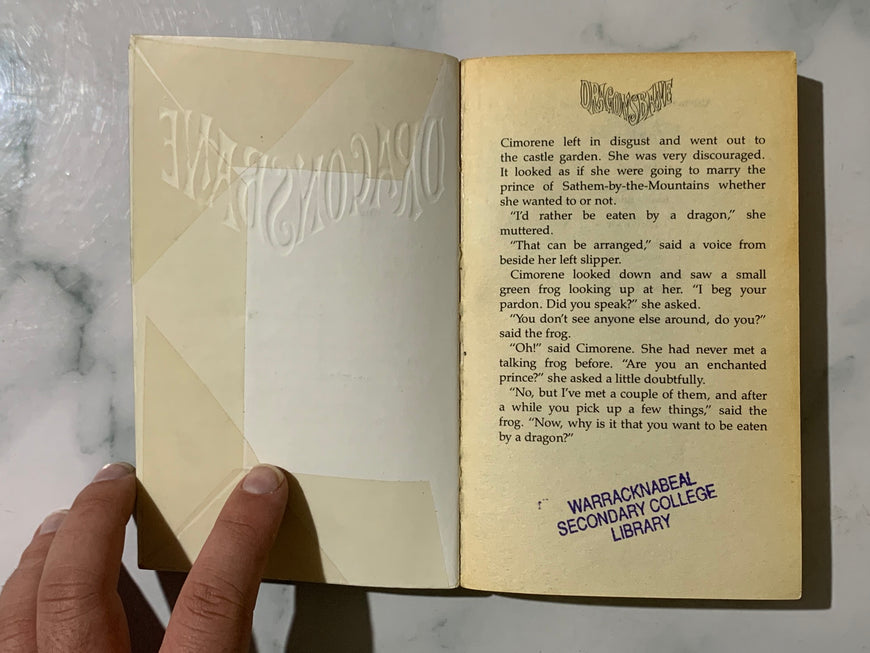 DRAGONSBANE
DRAGONSBANE
Cimorene left in disgust and went out to
the castle garden. She was very discouraged.
It looked as if she were going to marry the
prince of Sathem-by-the-Mountains whether
she wanted to or not.
“I’d rather be eaten by a dragon,” she
muttered.
“That can be arranged,” said a voice from
beside her left slipper.
Cimorene looked down and saw a small
green frog looking up at her. “I beg your
pardon. Did you speak?” she asked.
“You don’t see anyone else around, do you?”
said the frog.
“Oh!” said Cimorene. She had never met a
talking frog before. “Are you an enchanted
prince?” she asked a little doubtfully.
“No, but I’ve met a couple of them, and after
a while you pick up a few things,” said the
frog. “Now, why is it that you want to be eaten
by a dragon?”
WARRACKNABEAL
SECONDARY COLLEGE
LIBRARY